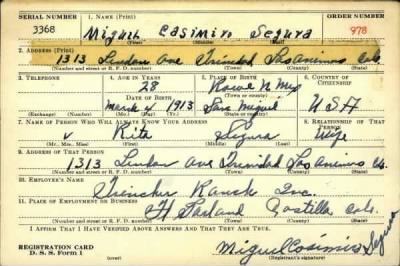 SERIAL NUMBER 1. NAME (Print) ORDER NUMBER
3368 Miguel Casimiro Segura 978
2. ADDRESS (Print)
1313 Linden Ave Trinidad Las Animas Colo.
(Number and street or R. F. D. number) (Town) (County) (State)
3. TELEPHONE 4. AGE IN YEARS 5. PLACE OF BIRTH 6. COUNTRY OF CITIZENSHIP
28 Rowe N Mex
DATE OF BIRTH (Town or county)
March 4 1913 San Miguel U.S.A
(Exchange) (Number) (Mo.) (Day) (Yr.) (State or country)
7. NAME OF PERSON WHO WILL ALWAYS KNOW YOUR ADDRESS 8. RELATIONSHIP OF THAT PERSON
Rita Segura Wife
(Mr., Mrs., Miss) (First) (Middle) (Last)
9. ADDRESS OF THAT PERSON
1313 Linden Ave Trinidad Las Animas Co.
(Number and street or R. F. D. number) (Town) (County) (State)
10. EMPLOYER'S NAME
Ranch Inc.
11. PLACE OF EMPLOYMENT OR BUSINESS
Ft Garland Costilla Colo.
(Number and street or R. F. D. number) (Town) (County) (State)
I AFFIRM THAT I HAVE VERIFIED ABOVE ANSWERS AND THAT THEY ARE TRUE.
REGISTRATION CARD
D. S. S. Form 1 Miguel Casimiro Segura
(Registrant's signature)